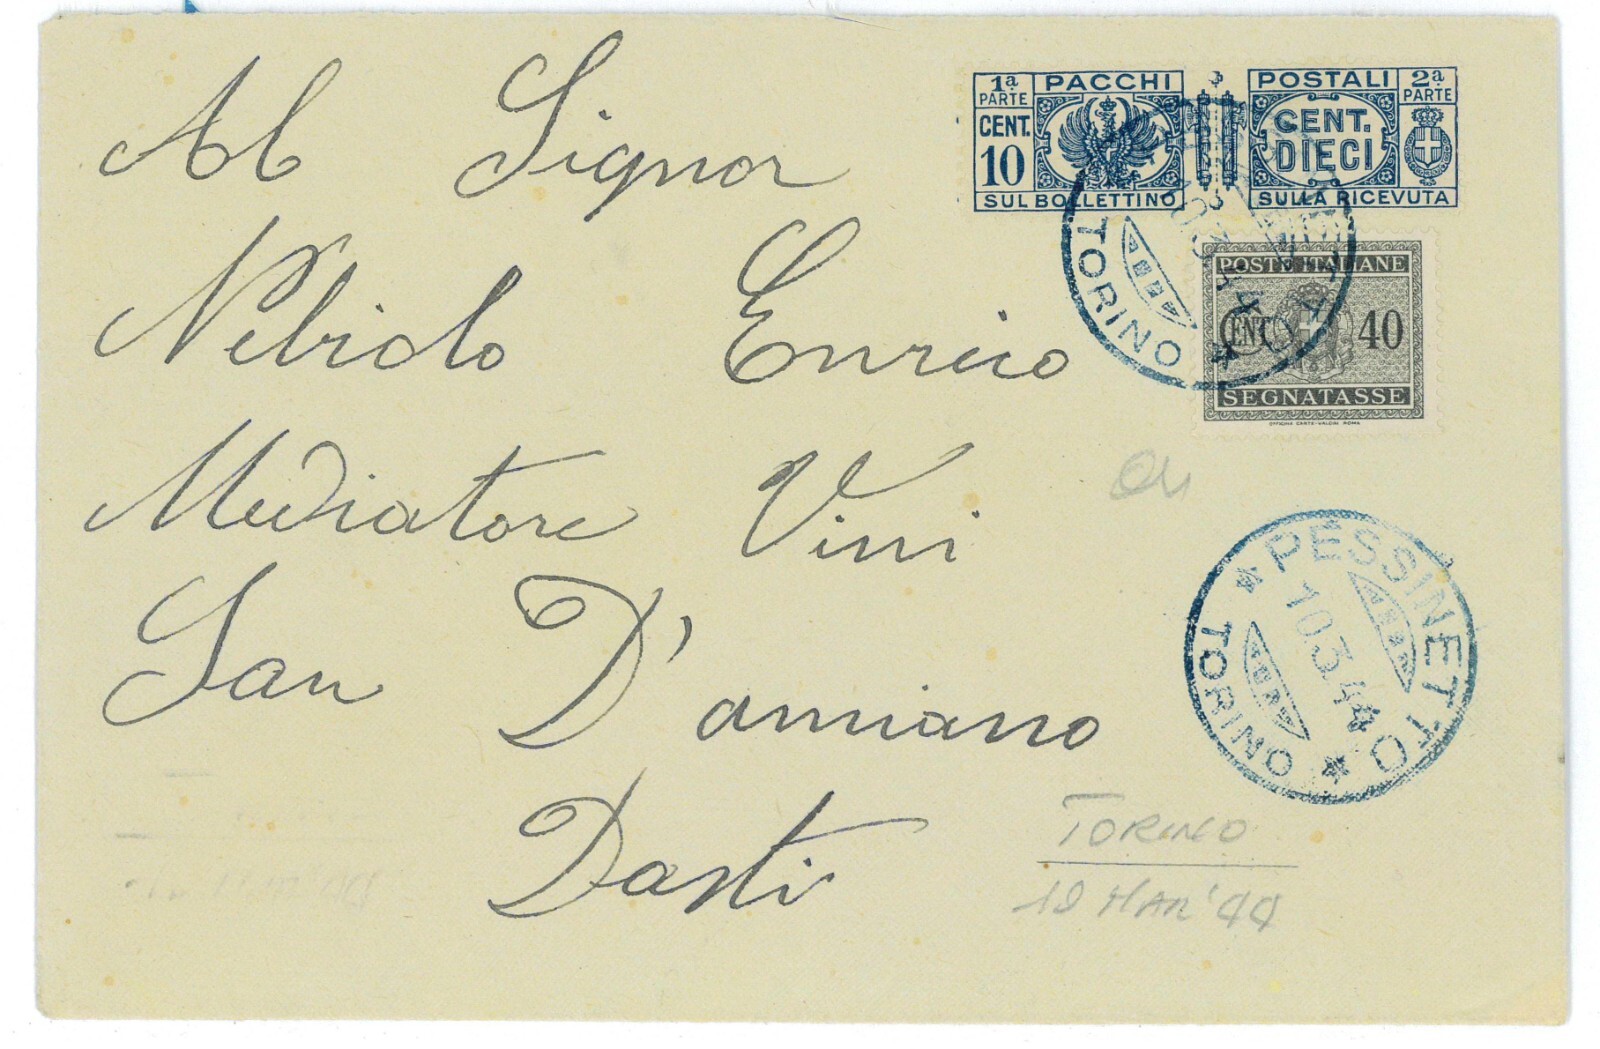 1ª PARTE PACCHI POSTALI 2ª PARTE
CENT. 10 CENT. DIECI
SUL BOLLETTINO SULLA RICEVUTA
TORINO
POSTE ITALIANE
CENT. 40
SEGNATASSE
OFFICINA CARTE-VALORI ROMA
Al Signor
Nebiolo Enrico
Mediatore Vini
San D'amiano
Dasti
* PESSINETTO *
10.3.44
TORINO
TORINO
10 MAR '44